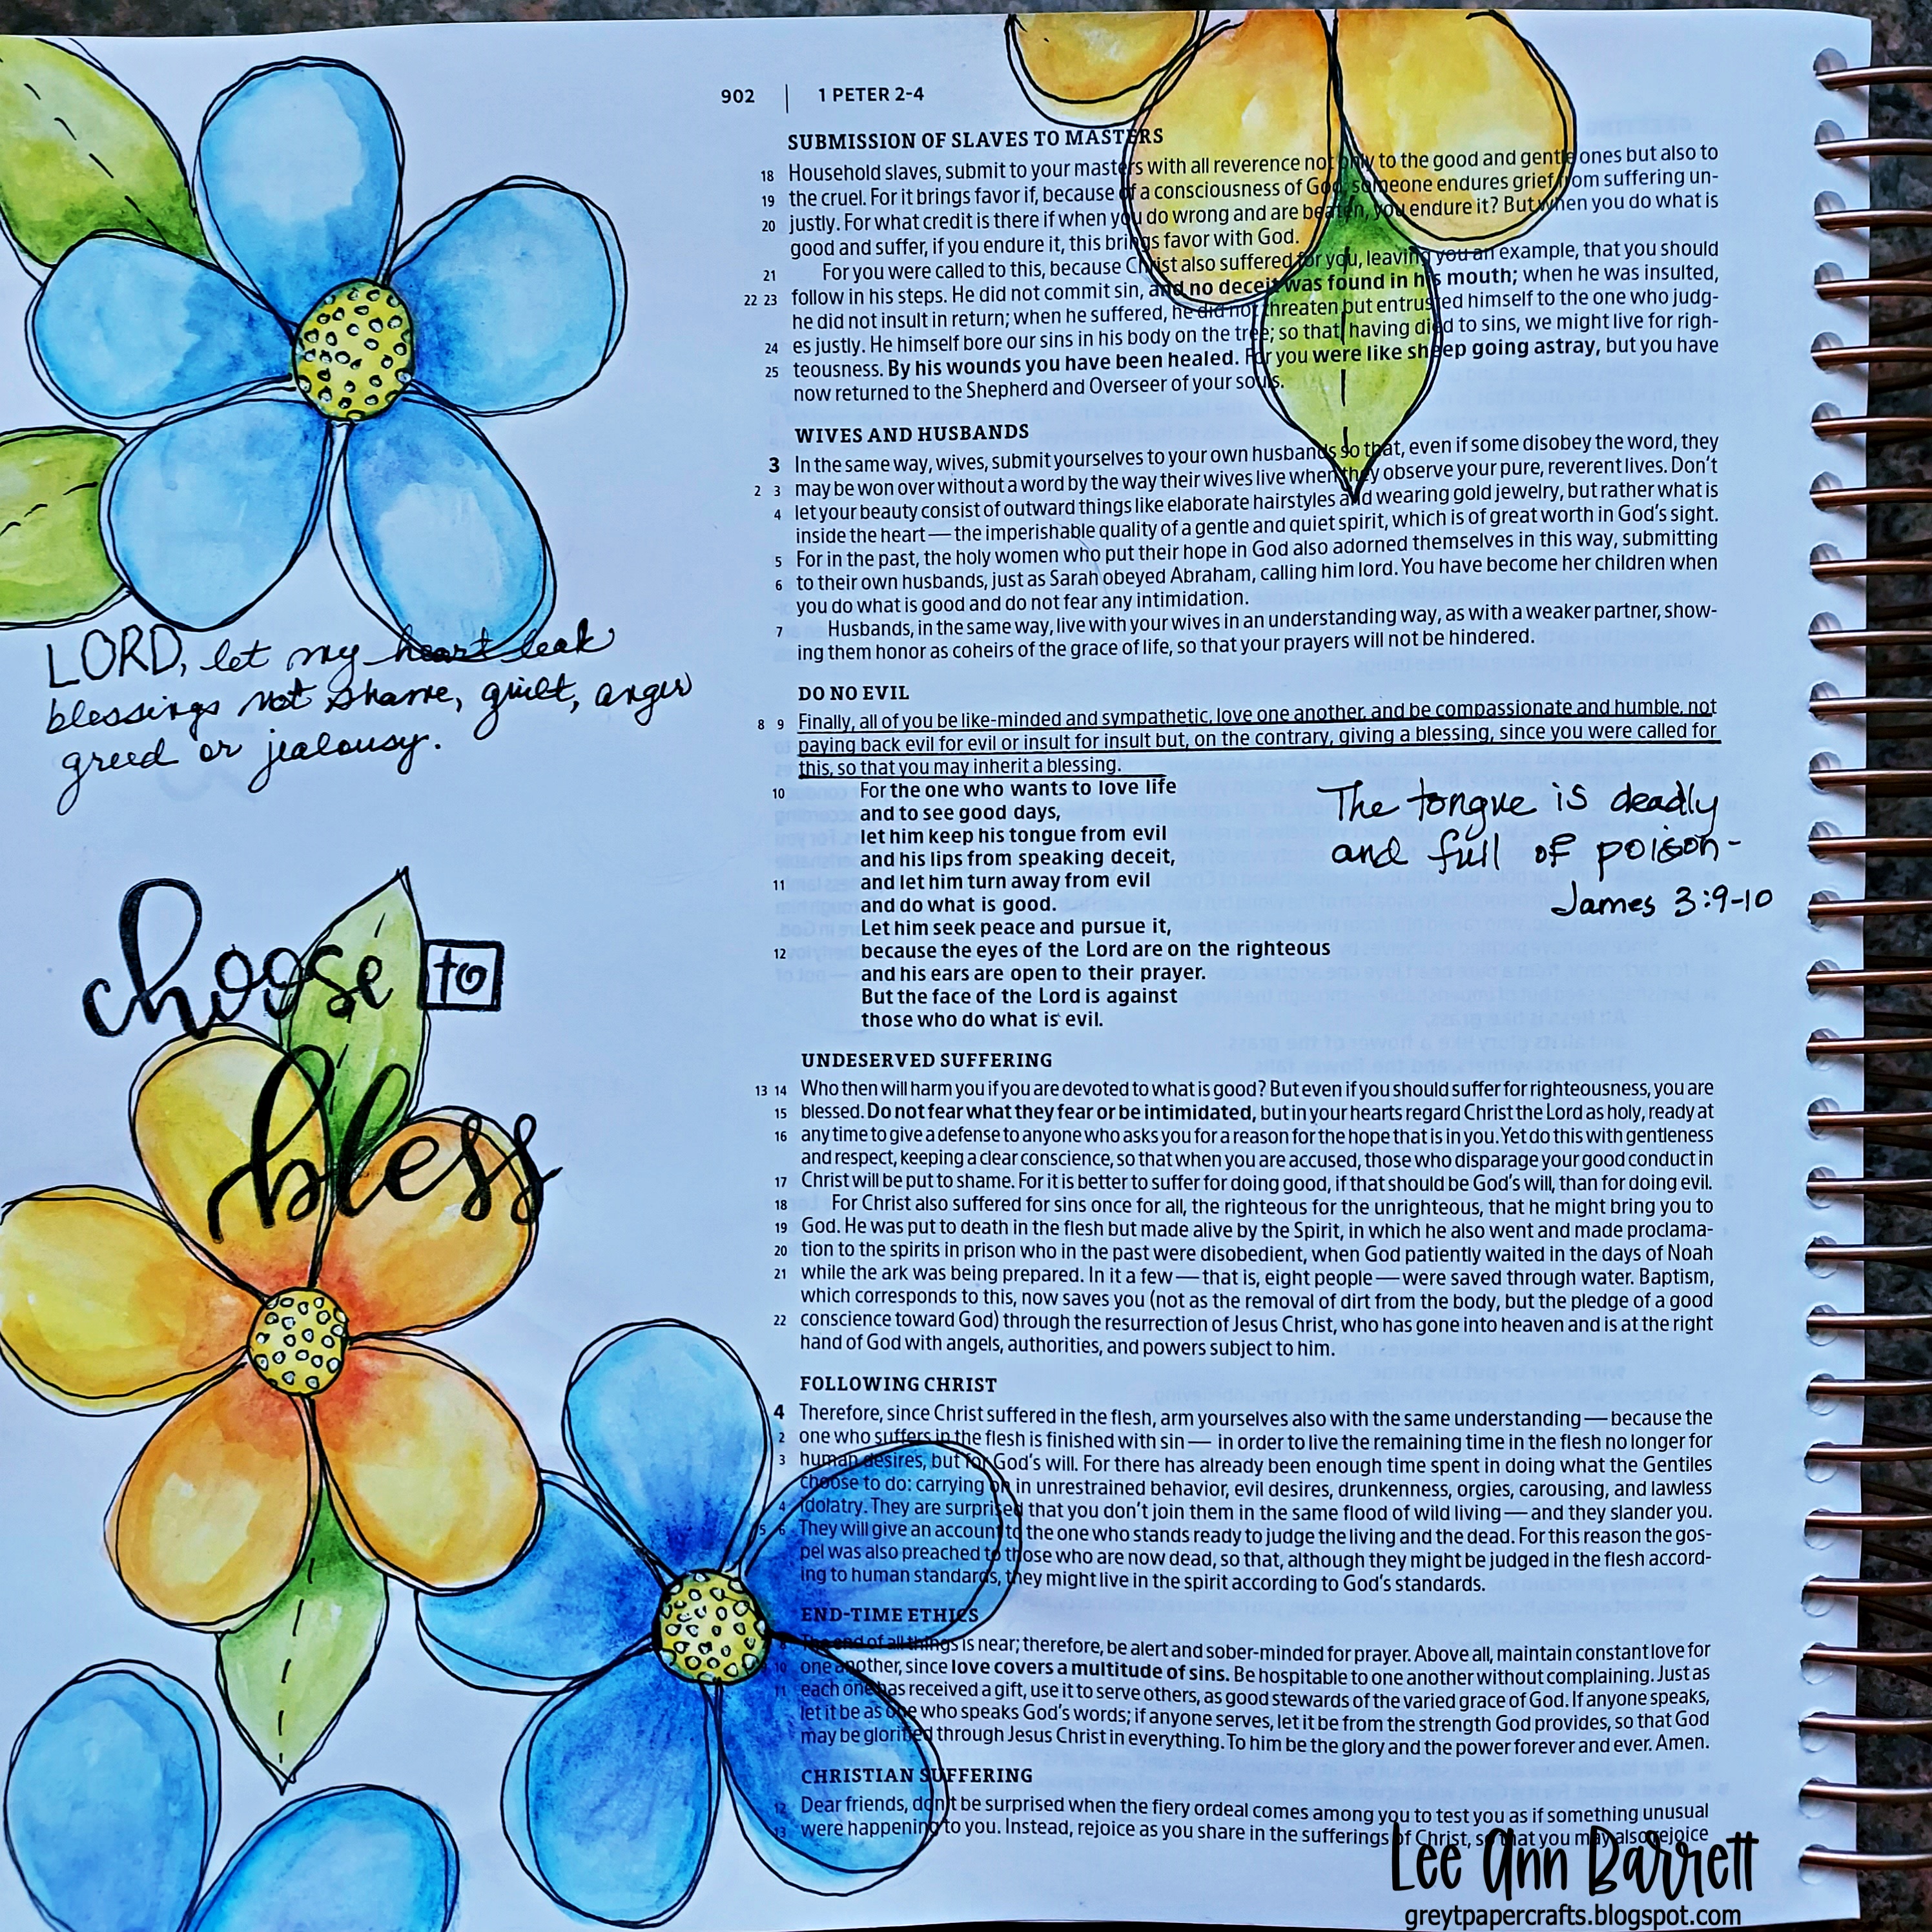 902 | 1 PETER 2-4
SUBMISSION OF SLAVES TO MASTERS
18 Household slaves, submit to your masters with all reverence not only to the good and gentle ones but also to
19 the cruel. For it brings favor if, because of a consciousness of God, someone endures grief from suffering un-
20 justly. For what credit is there if when you do wrong and are beaten, you endure it? But when you do what is
good and suffer, if you endure it, this brings favor with God.
21 For you were called to this, because Christ also suffered for you, leaving you an example, that you should
22 23 follow in his steps. He did not commit sin, and no deceit was found in his mouth; when he was insulted,
he did not insult in return; when he suffered, he did not threaten but entrusted himself to the one who judg-
24 es justly. He himself bore our sins in his body on the tree; so that, having died to sins, we might live for righ-
25 teousness. By his wounds you have been healed. For you were like sheep going astray, but you have
now returned to the Shepherd and Overseer of your souls.
WIVES AND HUSBANDS
3 In the same way, wives, submit yourselves to your own husbands so that, even if some disobey the word, they
2 3 may be won over without a word by the way their wives live when they observe your pure, reverent lives. Don't
4 let your beauty consist of outward things like elaborate hairstyles and wearing gold jewelry, but rather what is
inside the heart — the imperishable quality of a gentle and quiet spirit, which is of great worth in God's sight.
5 For in the past, the holy women who put their hope in God also adorned themselves in this way, submitting
6 to their own husbands, just as Sarah obeyed Abraham, calling him lord. You have become her children when
you do what is good and do not fear any intimidation.
7 Husbands, in the same way, live with your wives in an understanding way, as with a weaker partner, show-
ing them honor as coheirs of the grace of life, so that your prayers will not be hindered.
LORD, let my heart leak
blessings not shame, guilt, anger
greed or jealousy.
DO NO EVIL
8 9 Finally, all of you be like-minded and sympathetic, love one another, and be compassionate and humble, not
paying back evil for evil or insult for insult but, on the contrary, giving a blessing, since you were called for
this, so that you may inherit a blessing.
10 For the one who wants to love life
and to see good days,
let him keep his tongue from evil
and his lips from speaking deceit,
11 and let him turn away from evil
and do what is good.
Let him seek peace and pursue it,
12 because the eyes of the Lord are on the righteous
and his ears are open to their prayer.
But the face of the Lord is against
those who do what is evil.
The tongue is deadly
and full of poison-
James 3:9-10
choose to
bless
UNDESERVED SUFFERING
13 14 Who then will harm you if you are devoted to what is good? But even if you should suffer for righteousness, you are
15 blessed. Do not fear what they fear or be intimidated, but in your hearts regard Christ the Lord as holy, ready at
16 any time to give a defense to anyone who asks you for a reason for the hope that is in you. Yet do this with gentleness
and respect, keeping a clear conscience, so that when you are accused, those who disparage your good conduct in
17 Christ will be put to shame. For it is better to suffer for doing good, if that should be God's will, than for doing evil.
18 For Christ also suffered for sins once for all, the righteous for the unrighteous, that he might bring you to
19 God. He was put to death in the flesh but made alive by the Spirit, in which he also went and made proclama-
20 tion to the spirits in prison who in the past were disobedient, when God patiently waited in the days of Noah
21 while the ark was being prepared. In it a few — that is, eight people — were saved through water. Baptism,
which corresponds to this, now saves you (not as the removal of dirt from the body, but the pledge of a good
22 conscience toward God) through the resurrection of Jesus Christ, who has gone into heaven and is at the right
hand of God with angels, authorities, and powers subject to him.
FOLLOWING CHRIST
4 Therefore, since Christ suffered in the flesh, arm yourselves also with the same understanding — because the
2 one who suffers in the flesh is finished with sin — in order to live the remaining time in the flesh no longer for
3 human desires, but for God's will. For there has already been enough time spent in doing what the Gentiles
choose to do: carrying on in unrestrained behavior, evil desires, drunkenness, orgies, carousing, and lawless
4 idolatry. They are surprised that you don't join them in the same flood of wild living — and they slander you.
5 6 They will give an account to the one who stands ready to judge the living and the dead. For this reason the gos-
pel was also preached to those who are now dead, so that, although they might be judged in the flesh accord-
ing to human standards, they might live in the spirit according to God's standards.
END-TIME ETHICS
The end of all things is near; therefore, be alert and sober-minded for prayer. Above all, maintain constant love for
10 one another, since love covers a multitude of sins. Be hospitable to one another without complaining. Just as
11 each one has received a gift, use it to serve others, as good stewards of the varied grace of God. If anyone speaks,
let it be as one who speaks God's words; if anyone serves, let it be from the strength God provides, so that God
may be glorified through Jesus Christ in everything. To him be the glory and the power forever and ever. Amen.
CHRISTIAN SUFFERING
12 Dear friends, don't be surprised when the fiery ordeal comes among you to test you as if something unusual
13 were happening to you. Instead, rejoice as you share in the sufferings of Christ, so that you may also rejoice
Lee Ann Barrett
greytpapercrafts.blogspot.com